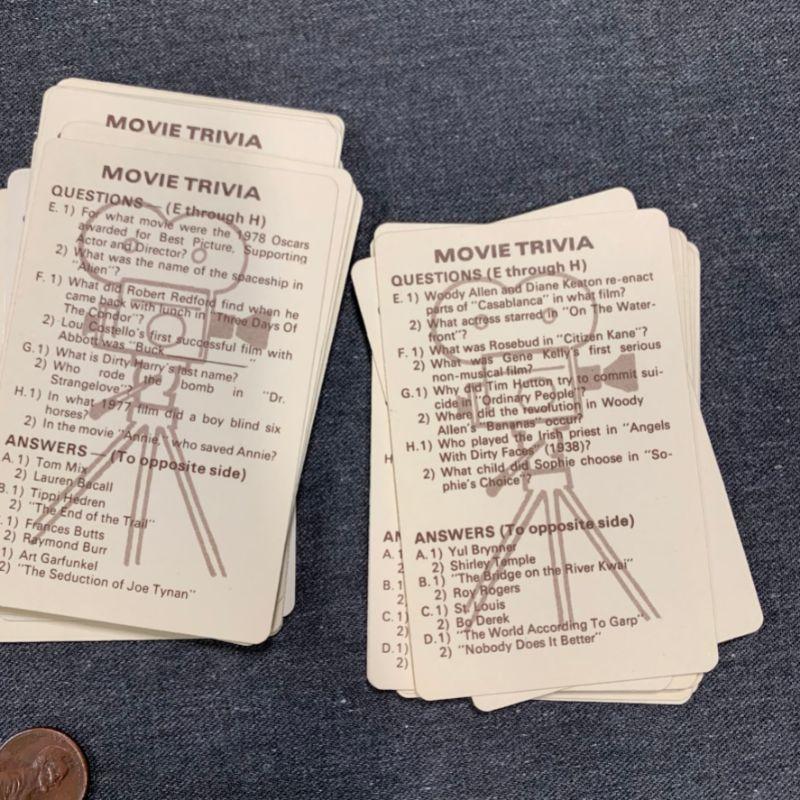 MOVIE TRIVIA
MOVIE TRIVIA
QUESTIONS — (E through H)
E. 1) For what movie were the 1978 Oscars
awarded for Best Picture, Supporting
Actor and Director?
2) What was the name of the spaceship in
"Alien"?
F. 1) What did Robert Redford find when he
came back with lunch in "Three Days Of
The Condor"?
2) Lou Costello's first successful film with
Abbott was "Buck ________"
G. 1) What is Dirty Harry's last name?
2) Who rode the bomb in "Dr.
Strangelove"?
H. 1) In what 1977 film did a boy blind six
horses?
2) In the movie "Annie," who saved Annie?
ANSWERS — (To opposite side)
A. 1) Tom Mix
2) Lauren Bacall
B. 1) Tippi Hedren
2) "The End of the Trail"
1) Frances Butts
2) Raymond Burr
1) Art Garfunkel
2) "The Seduction of Joe Tynan"
MOVIE TRIVIA
QUESTIONS (E through H)
E. 1) Woody Allen and Diane Keaton re-enact
parts of "Casablanca" in what film?
2) What actress starred in "On The Water-
front"?
F. 1) What was Rosebud in "Citizen Kane"?
2) What was Gene Kelly's first serious
non-musical film?
G. 1) Why did Tim Hutton try to commit sui-
cide in "Ordinary People"?
2) Where did the revolution in Woody
Allen's "Bananas" occur?
H. 1) Who played the Irish priest in "Angels
With Dirty Faces" (1938)?
2) What child did Sophie choose in "So-
phie's Choice"?
ANSWERS (To opposite side)
A. 1) Yul Brynner
2) Shirley Temple
B. 1) "The Bridge on the River Kwai"
2) Roy Rogers
C. 1) St. Louis
2) Bo Derek
D. 1) "The World According To Garp"
2) "Nobody Does It Better"
H
AN
A. 1
2
B. 1
2
C. 1)
2)
D. 1)
2)